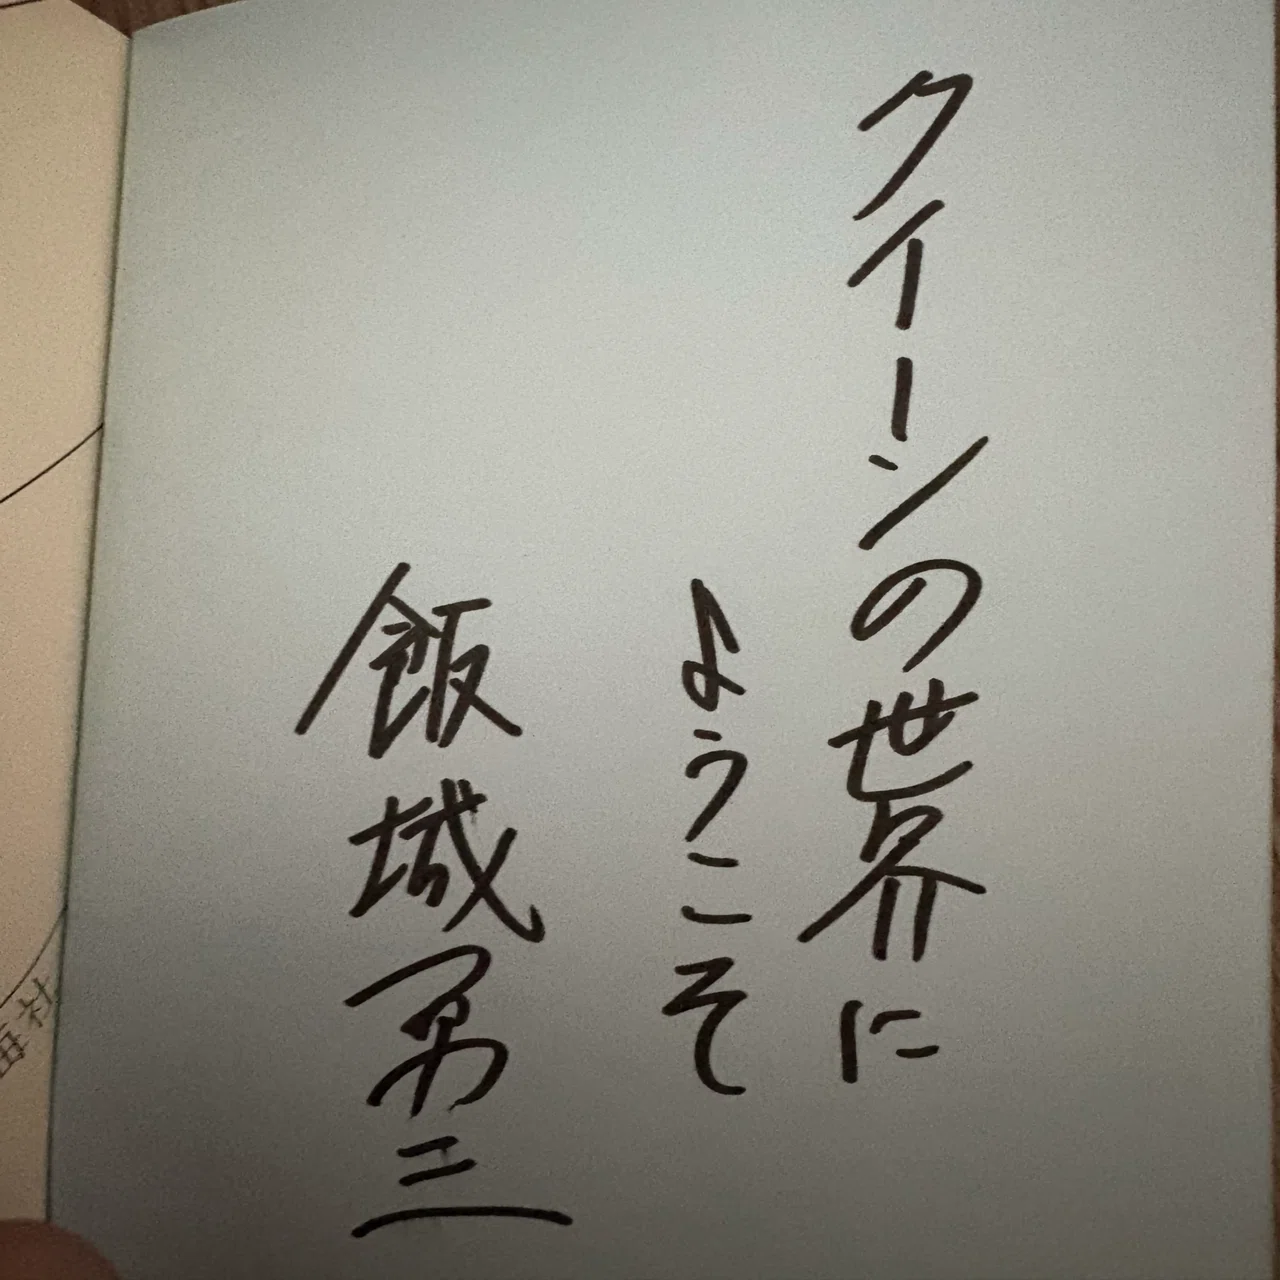 クイーンの世界に
ようこそ
飯城勇三
社